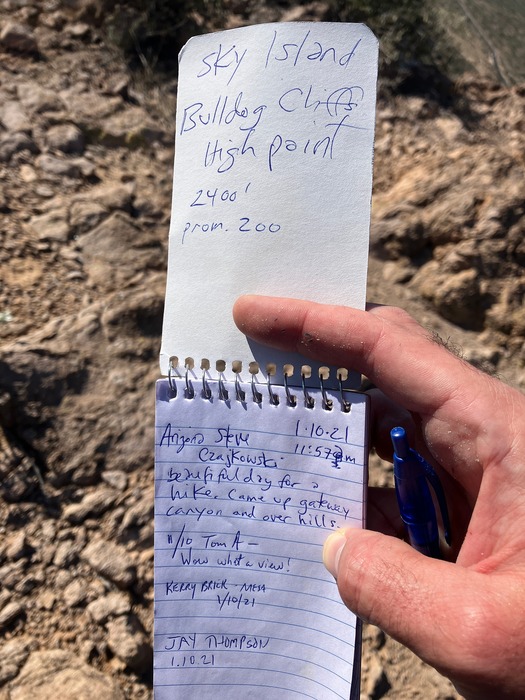 Sky Island
Bulldog Cliffs
High point
2400'
prom. 200
1.10.21
Arizona Steve 11:57am
Czajkowski
beautiful day for a
hike. Came up gateway
canyon and over hills.
1/10 Tom A —
Wow what a view!
KERRY BRICK - MESA
1/10/21
JAY THOMPSON
1.10.21